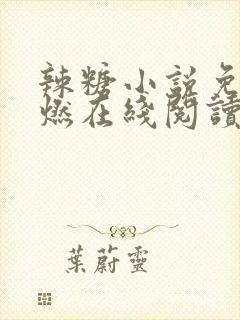 辣糖小説免
燃在綫閱讀
葉蔚靈